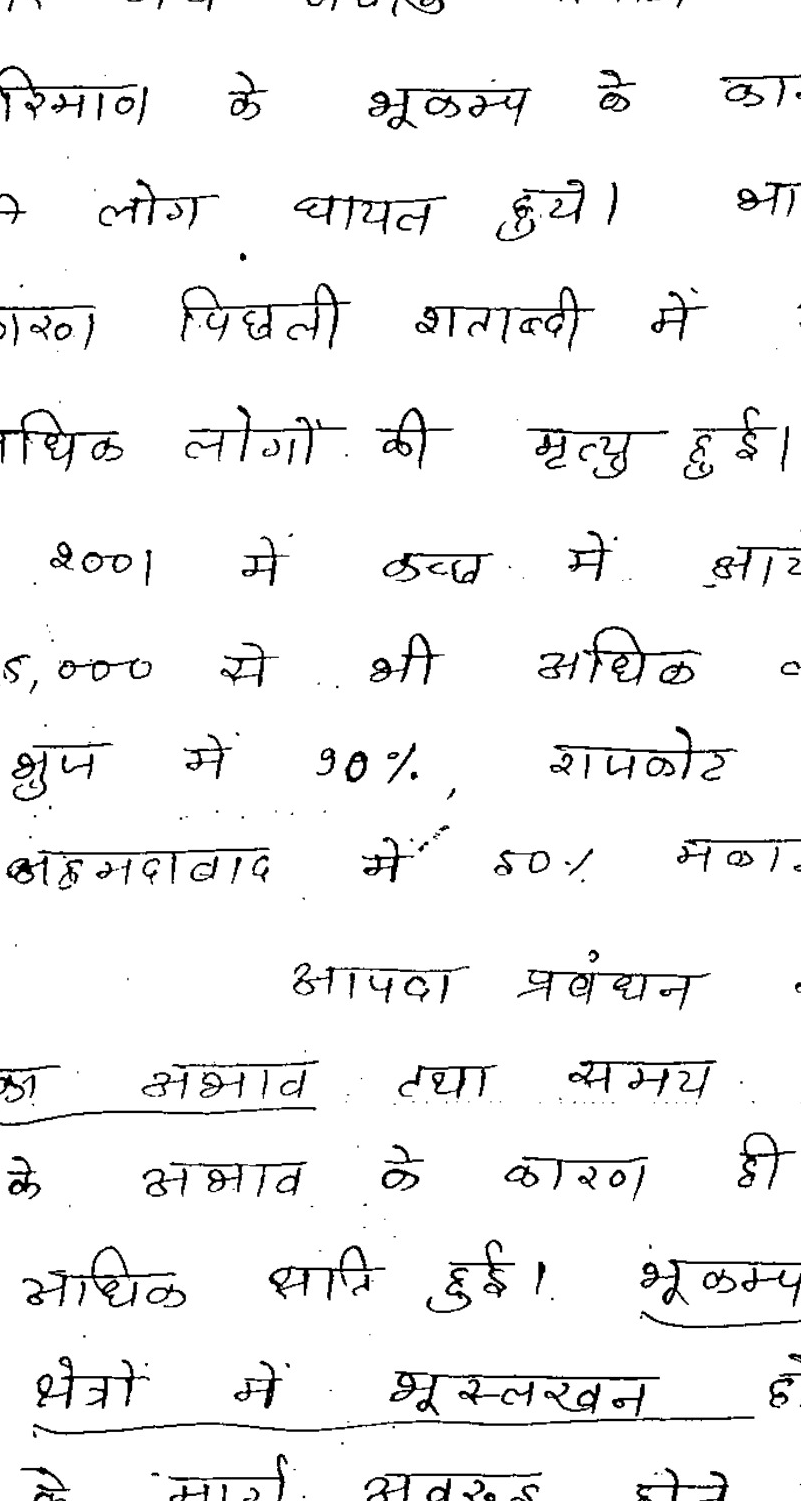 रिमाण के भूकम्प के का
लोग घायल हुये। भा
ारण पिछली शताब्दी में
धिक लोगों की मृत्यु हुई।
2001 में कच्छ में आये
5,000 से भी अधिक
भुज में 90%, राजकोट
अहमदाबाद में 50% मका
आपदा प्रबंधन
का अभाव तथा समय
के अभाव के कारण ही
अधिक क्षति हुई। भूकम्प
क्षेत्रों में भूस्लखन हो
के मार्ग अवरूद्ध होने